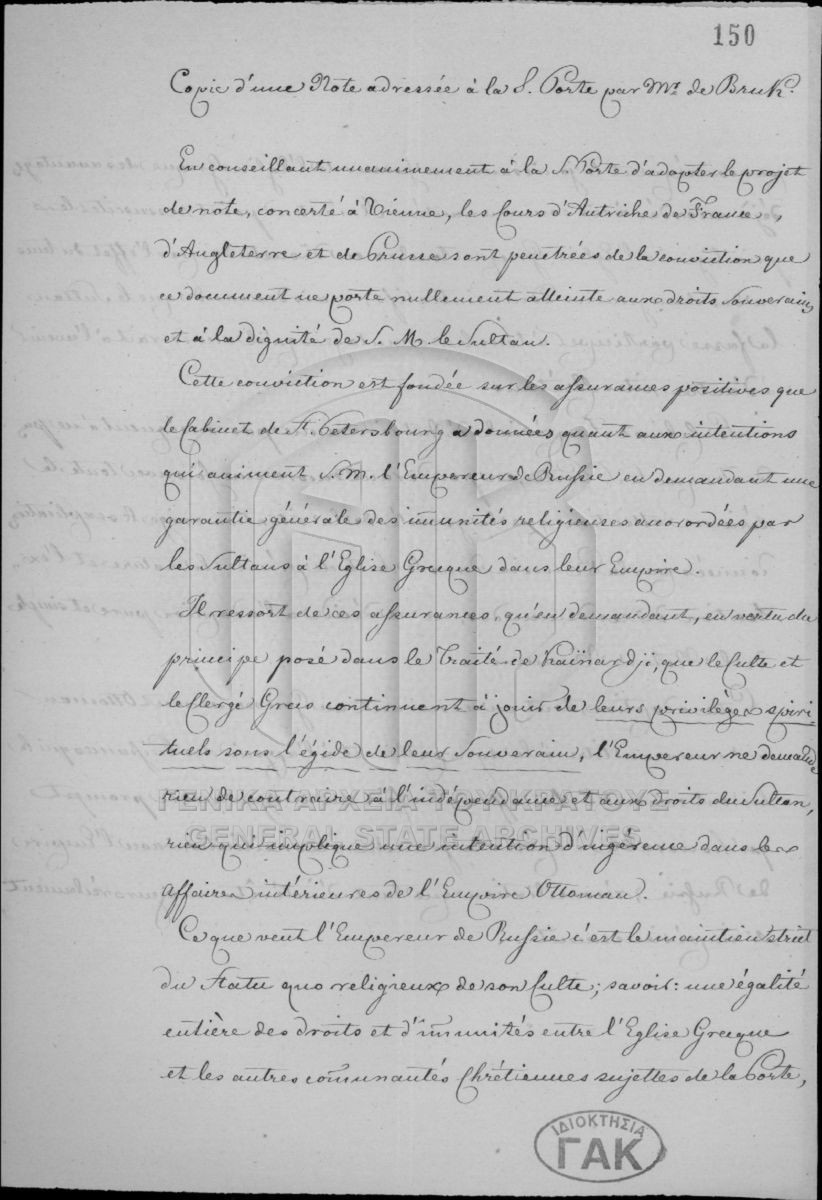 150
Copie d'une Note adressée à la S. Porte par Mr. de Bruk.
En conseillant unanimement à la S. Porte d'adopter le projet
de note, concerté à Vienne, les Cours d'Autriche de France,
d'Angleterre et de Prusse sont penetrées de la conviction que
ce document ne porte nullement atteinte aux droits Souverains
et à la dignité de S. M. le Sultan.
Cette conviction est fondée sur les assurances positives que
le Cabinet de St. Petersbourg a données quant aux intentions
qui animent S. M. l'Empereur de Russie en demandant une
garantie générale des immunités religieuses accordées par
les Sultans à l'Eglise Grecque dans leur Empire.
Il ressort de ces assurances, qu'en demandant, en vertu du
principe posé dans le Traité de Kaïnardji, que le Culte et
le Clergé Grecs continuent à jouir de leurs privilèges spiri
tuels sous l'égide de leur Souverain, l'Empereur ne demande
rien de contraire à l'indépendance et aux droits du Sultan,
rien qui implique une intention d'ingérence dans les
affaires intérieures de l'Empire Ottoman.
Ce que veut l'Empereur de Russie c'est le maintien strict
du Statu quo religieux de son Culte; savoir: une égalité
entière des droits et d'immunités entre l'Eglise Grecque
et les autres communautés Chrétiennes sujettes de la Porte,
ΓΕΝΙΚΑ ΑΡΧΕΙΑ ΤΟΥ ΚΡΑΤΟΥΣ
GENERAL STATE ARCHIVES
ΙΔΙΟΚΤΗΣΙΑ
ΓΑΚ